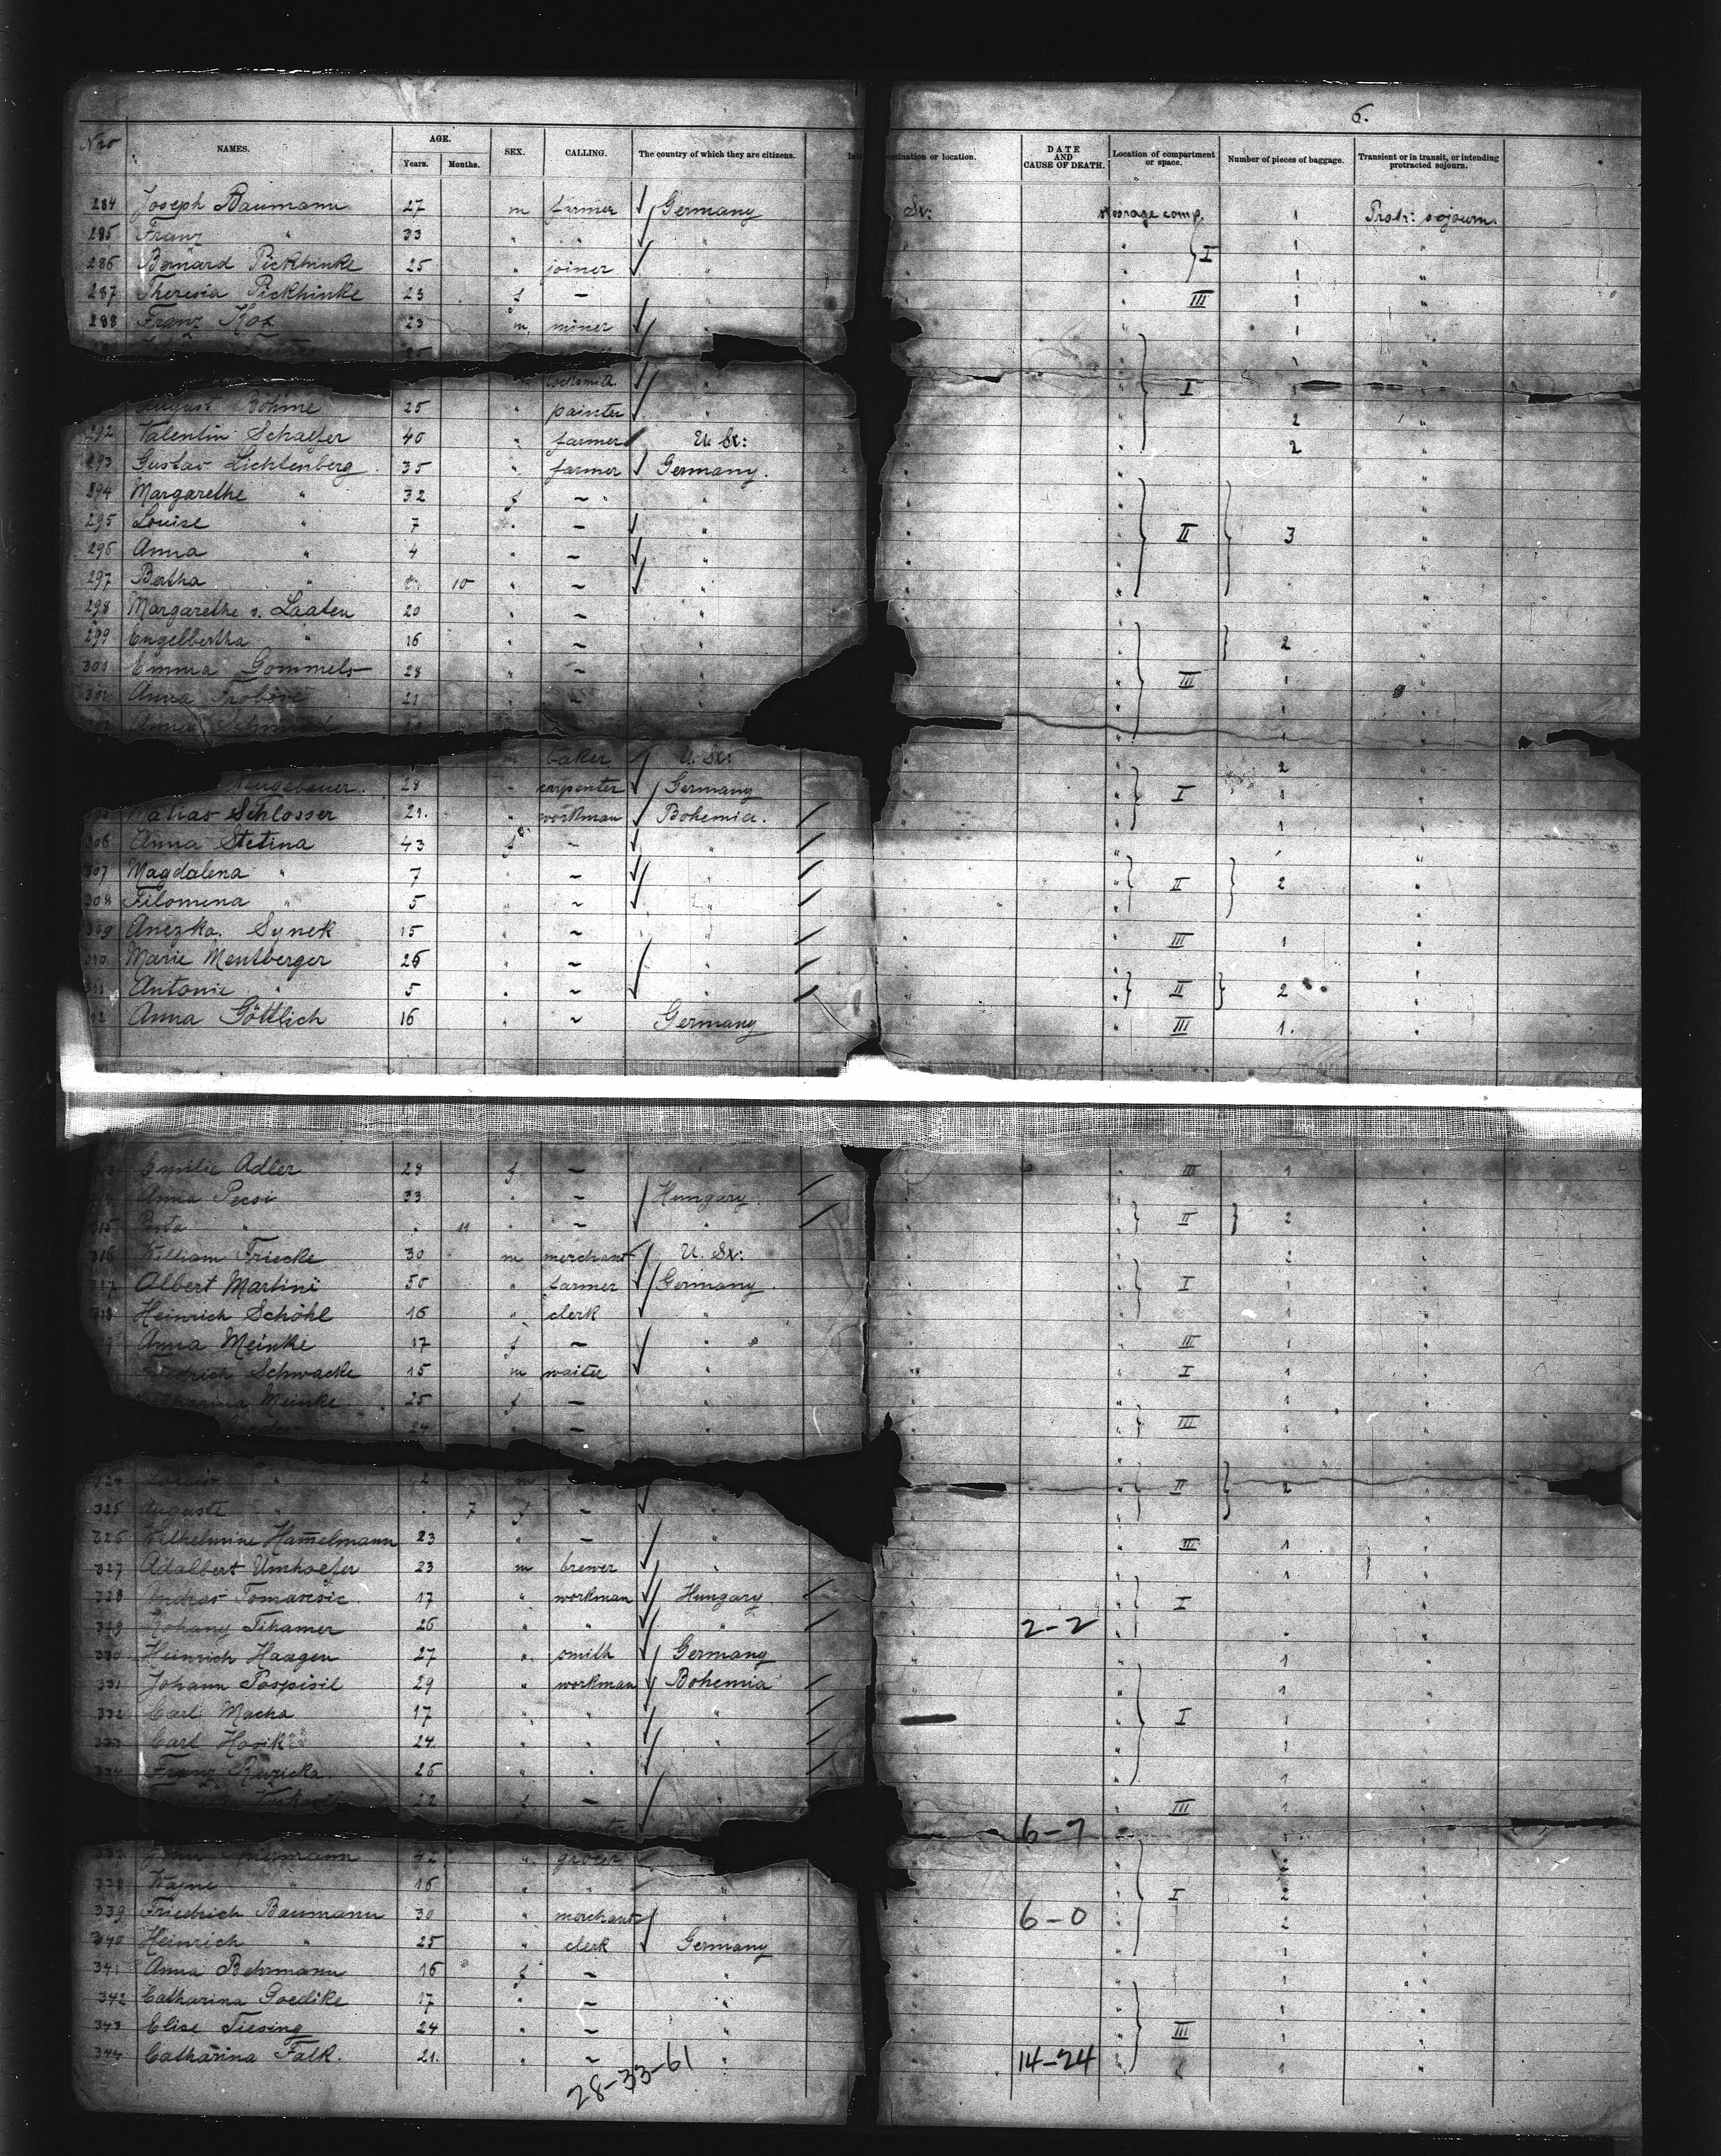 6.
Nro NAMES. AGE. Years. Months. SEX. CALLING. The country of which they are citizens. destination or location. DATE AND CAUSE OF DEATH. Location of compartment or space. Number of pieces of baggage. Transient or in transit, or intending protracted sojourn.
284 Joseph Baumann 27 m farmer Germany St: steerage comp. 1 Protr: sojourn.
285 Franz " 33 " " " " " I 1 "
286 Bernard Pickhinke 25 " joiner " " " 1 "
287 Theresia Pickhinke 23 f – " " " III 1 "
288 Franz Kos 23 m. miner " " 1 "
25
locksmith " " I 1
August Böhme 25 " painter " " 2 "
292 Valentin Schaefer 40 " farmer U. St: " 2 "
293 Gustav Lichtenberg 35 " farmer Germany. " "
294 Margarethe " 32 f – " " "
295 Louise " 7 " – " " II 3 "
296 Anna " 4 " – " " "
297 Bertha " 10 " – " " "
298 Margarethe v. Laaten 20 " – " " "
299 Engelbertha " 16 " – " " 2 "
300 Emma Gommels 28 " – " " III 1 "
301 Anna 21 " – " 1
Anna
m baker U. St: " 2 "
Neugebauer. 28 " carpenter Germany " I 1 "
Matias Schlosser 21. " workman Bohemia. " 1 "
306 Anna Stetina 43 f – " " "
307 Magdalena " 7 – " " II 2 "
308 Filomena " 5 " – " " "
309 Anezka. Synek 15 " – " " III 1 "
310 Marie Mentberger 26 " – " " "
311 Antonie " 5 " – " " II 2 "
Anna Göttlich 16 " – Germany " III 1. "
Emilie Adler 28 f – " III 1 "
Anna Pecsi 33 " – Hungary. " "
315 " 11 " – " " II 2 "
316 William Friecke 30 m merchant U. St: " 2 "
317 Albert Martini 50 " farmer Germany. " I 1 "
318 Heinrich Schöhl 16 " clerk " " 1 "
Anna Meinke 17 f – " " III 1 "
Schwacke 15 m waiter " " I 1 "
Meinke 25 f – " " 1 "
24 " – " III 1 "
324 2 m " II 2 "
325 Auguste " 7 f – " " "
326 Wilhelmine Ham̄elmann 23 " – " " III 1 "
327 Adalbert Umhoefer 23 m brewer " " 1 "
328 Tomascsic. 17 " workman Hungary. " I 1 "
329 Tihamer 26 " " " 2-2 " "
330 Heinrich Haagen 27 " smith Germany " 1 "
331 Johann Pospisil 29 " workman Bohemia " 1 "
332 Carl Macha 17 " " " " I 1 "
333 Carl Hosik 24 " " " " 1 "
334 Franz Ruzicka. 26 " " " " 1 "
22 f – " III 1 "
6-7
John 42 " grocer "
338 16 " " " I 2 "
339 Friedrich Baumann 30 " merchant " 6-0 " 2 "
340 Heinrich " 25 " clerk Germany " 1 "
341 Anna Behrmann 16 f – " " 1 "
342 Catharina Goedike 17 " – " " 1 "
343 Elise Tiesing 24 " – " " III 1 "
344 Catharina Falk. 21. " – " 14-24 " 1 "
28-33-61